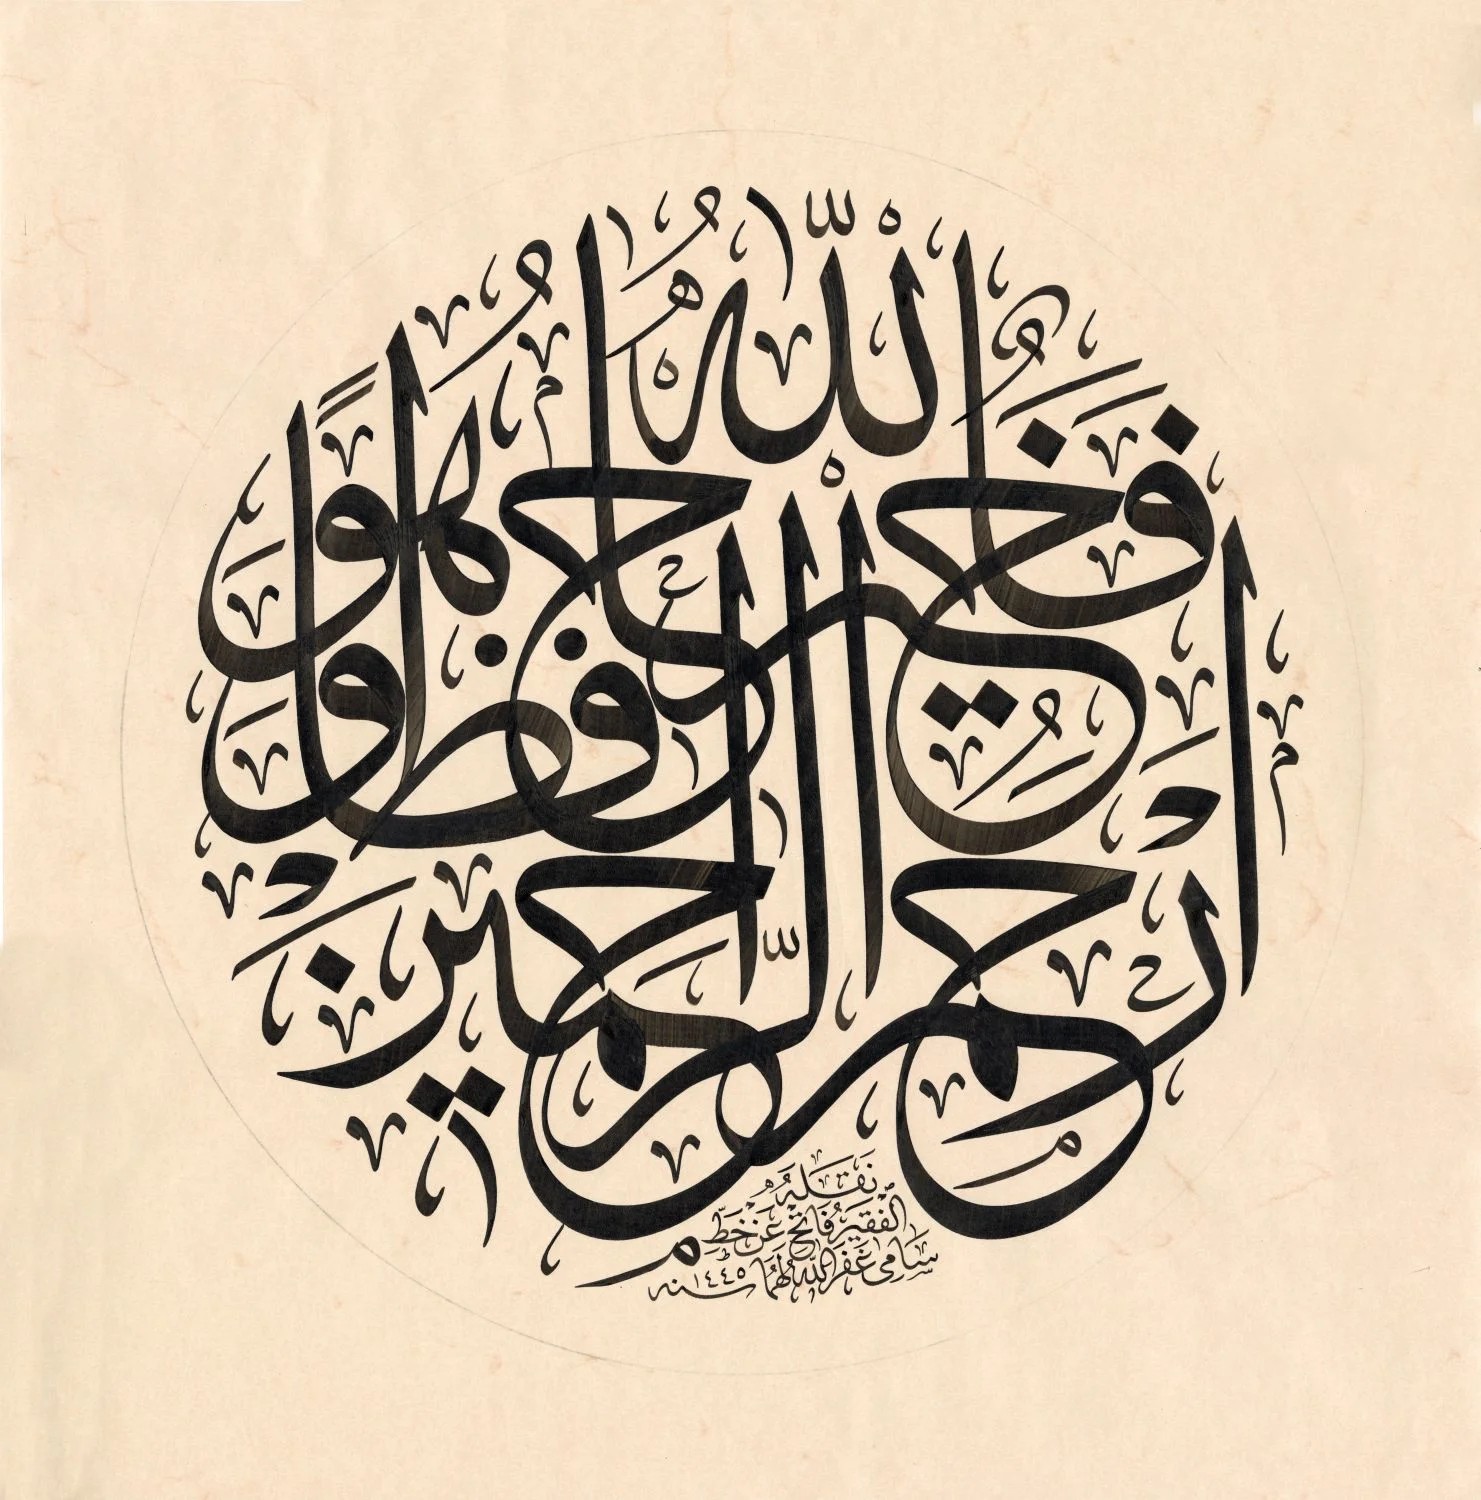 فَاللّٰهُ خَيْرٌ حَافِظًا وَهُوَ أَرْحَمُ الرَّاحِمِينَ
نقله
الفقير فاتح عن خط
سامى غفر الله لهما سنه ١٤٤٥